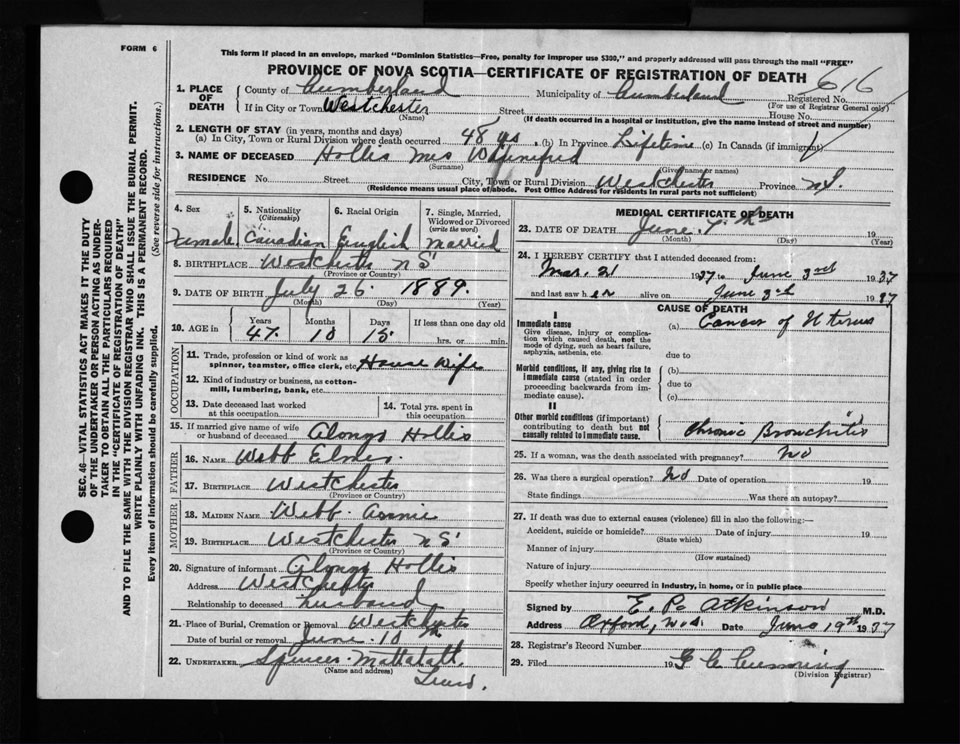 FORM 6
This form if placed in an envelope, marked "Dominion Statistics—Free, penalty for improper use $300," and properly addressed will pass through the mail "FREE"
PROVINCE OF NOVA SCOTIA—CERTIFICATE OF REGISTRATION OF DEATH
616
1. PLACE OF DEATH
County of Cumberland Municipality of Cumberland Registered No.
(For use of Registrar General only)
If in City or Town Westchester Street House No.
(Name) (If death occurred in a hospital or institution, give the name instead of street and number)
2. LENGTH OF STAY (in years, months and days)
(a) In City, Town or Rural Division where death occurred 48 ys. (b) In Province Lifetime (c) In Canada (if immigrant)
3. NAME OF DECEASED Hollis Mrs
(Surname) (Given name or names)
RESIDENCE No. Street City, Town or Rural Division Westchester Province N.S.
(Residence means usual place of abode. Post Office Address for residents in rural parts not sufficient)
4. Sex Female
5. Nationality (Citizenship) Canadian
6. Racial Origin English
7. Single, Married, Widowed or Divorced (write the word) Married
8. BIRTHPLACE Westchester N S
(Province or Country)
9. DATE OF BIRTH July 26. 1889.
(Month) (Day) (Year)
10. AGE in Years Months Days If less than one day old
47 10 15 hrs. or min.
OCCUPATION
11. Trade, profession or kind of work as spinner, teamster, office clerk, etc. House Wife
12. Kind of industry or business, as cotton-mill, lumbering, bank, etc.
13. Date deceased last worked at this occupation
14. Total yrs. spent in this occupation
15. If married give name of wife or husband of deceased Alonzo Hollis
FATHER
16. NAME Webb Elmer.
17. BIRTHPLACE Westchester
(Province or Country)
MOTHER
18. MAIDEN NAME Webb Annie
19. BIRTHPLACE Westchester N S
(Province or Country)
20. Signature of informant Alonzo Hollis
Address Westchester
Relationship to deceased husband
21. Place of Burial, Cremation or Removal Westchester
Date of burial or removal June 10 th
22. UNDERTAKER Spencer
(Name and address)
MEDICAL CERTIFICATE OF DEATH
23. DATE OF DEATH June 19
(Month) (Day) (Year)
24. I HEREBY CERTIFY that I attended deceased from:
Mar. 21 1937 to June 3rd 1937
and last saw her alive on June 3rd 1937
CAUSE OF DEATH
I
Immediate cause
Give disease, injury or complication which caused death, not the mode of dying, such as heart failure, asphyxia, asthenia, etc.
(a) Cancer of Uterus
due to
Morbid conditions, if any, giving rise to immediate cause (stated in order proceeding backwards from immediate cause).
(b)
due to
(c)
II
Other morbid conditions (if important) contributing to death but not causally related to immediate cause.
Chronic Bronchitis
25. If a woman, was the death associated with pregnancy? No
26. Was there a surgical operation? No Date of operation 19
State findings Was there an autopsy?
27. If death was due to external causes (violence) fill in also the following:—
Accident, suicide or homicide? Date of injury 19
(State which)
Manner of injury
(How sustained)
Nature of injury
Specify whether injury occurred in industry, in home, or in public place
Signed by E. P. Atkinson M.D.
Address Oxford, N.S. Date June 19th 1937
28. Registrar's Record Number
29. Filed 19 G C Cumming
(Division Registrar)
SEC. 46—VITAL STATISTICS ACT MAKES IT THE DUTY
OF THE UNDERTAKER OR PERSON ACTING AS UNDER-
TAKER TO OBTAIN ALL THE PARTICULARS REQUIRED
IN THE "CERTIFICATE OF REGISTRATION OF DEATH"
AND TO FILE THE SAME WITH THE DIVISION REGISTRAR WHO SHALL ISSUE THE BURIAL PERMIT.
WRITE PLAINLY WITH UNFADING INK. THIS IS A PERMANENT RECORD.
Every item of information should be carefully supplied. (See reverse side for instructions.)